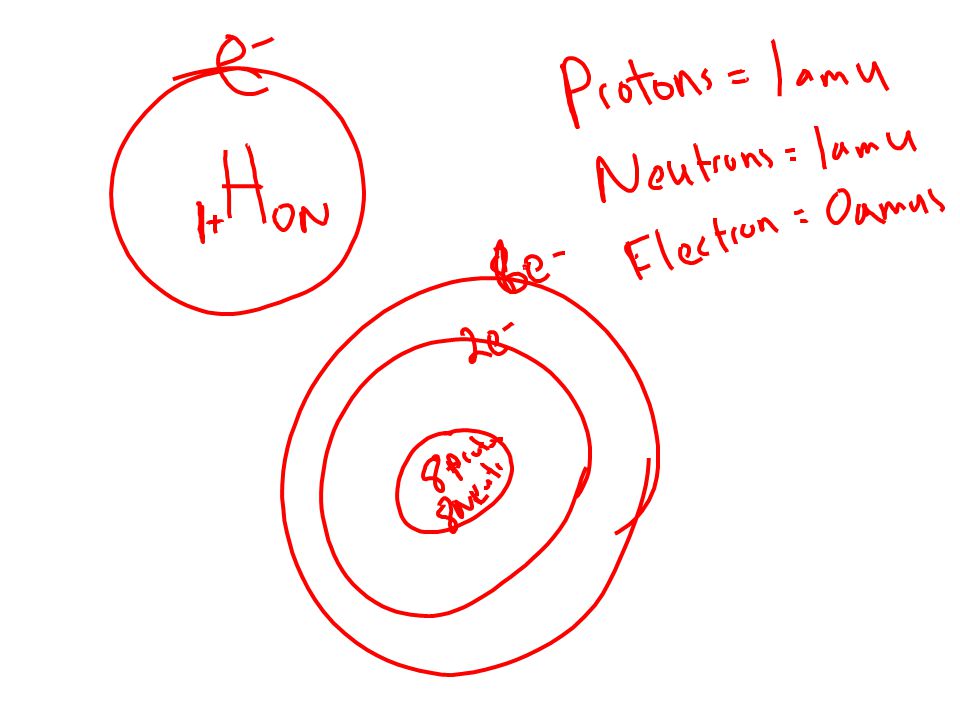 e-
H
1+
0N
Protons = 1amu
Neutrons = 1amu
Electron = 0amus
6e-
2e-
8 proto
8 Neut